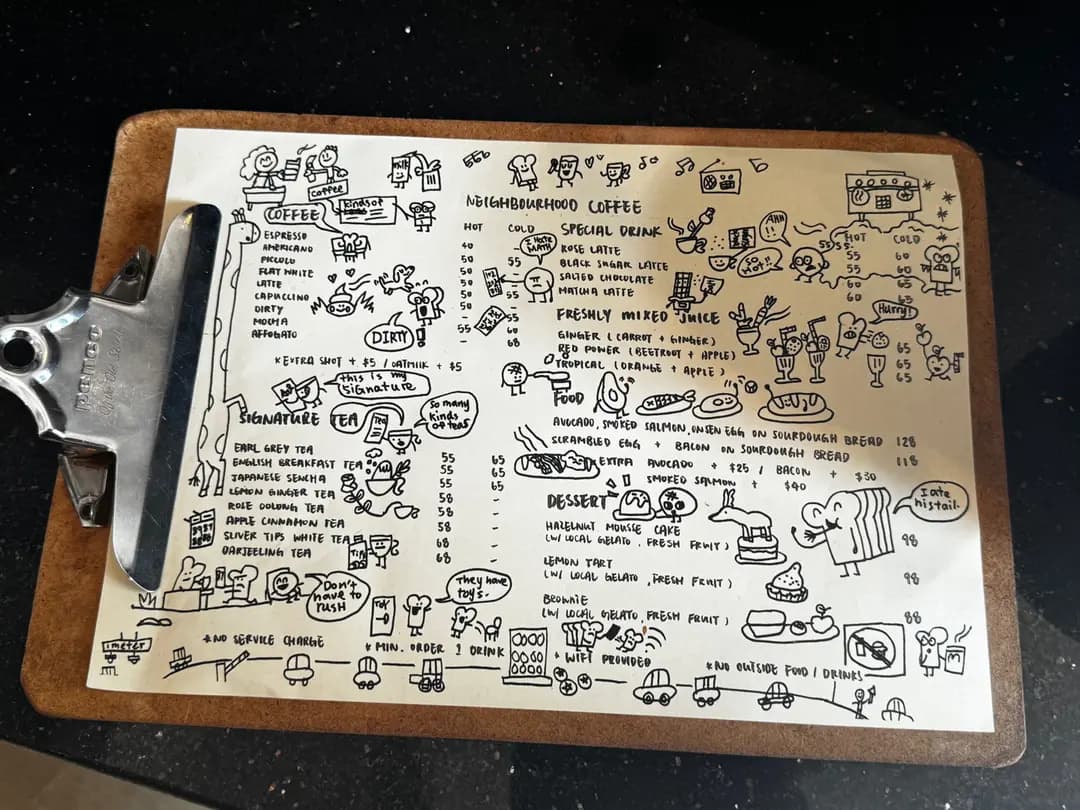 NEIGHBOURHOOD COFFEE
milk
coffee
kinds of
COFFEE
HOT COLD
ESPRESSO 40
AMERICANO 50 55
PICCOLO 50
FLAT WHITE 50
LATTE 50 55
CAPUCCINO 50
DIRTY -
MOCHA 55 60
AFFOGATO - 68
DIRTY!
I HATE MATH
*EXTRA SHOT + $5 / OATMILK + $5
this is my
signature
SIGNATURE TEA
TEA
So many
kinds
of teas
EARL GREY TEA 55 65
ENGLISH BREAKFAST TEA 55 65
JAPANESE SENCHA 55 65
LEMON GINGER TEA 58 -
ROSE OOLONG TEA 58 -
APPLE CINNAMON TEA 58 -
SLIVER TIPS WHITE TEA 68 -
DARJEELING TEA 68 -
Don't
have to
rush
They have
toys.
TOY
imeter
*NO SERVICE CHARGE
* MIN. ORDER 1 DRINK
SPECIAL DRINK
HOT COLD
ROSE LATTE 55 60
BLACK SUGAR LATTE 55 60
SALTED CHOCOLATE 60 65
MATCHA LATTE 60 65
SO
HOT!!
AHH
!!
SSSS..
FRESHLY MIXED JUICE
GINGER (CARROT + GINGER) 65
RED POWER (BEETROOT + APPLE) 65
TROPICAL (ORANGE + APPLE) 65
Hurry!
FOOD
AVOCADO, SMOKED SALMON, ONSEN EGG ON SOURDOUGH BREAD 128
SCRAMBLED EGG + BACON ON SOURDOUGH BREAD 118
EXTRA AVOCADO + $25 / BACON + $30
SMOKED SALMON + $40
DESSERT
I ate
his tail.
HAZELNUT MOUSSE CAKE 98
(W/ LOCAL GELATO, FRESH FRUIT)
LEMON TART 98
(W/ LOCAL GELATO, FRESH FRUIT)
BROWNIE 88
(W/ LOCAL GELATO, FRESH FRUIT)
+ WIFI PROVIDED
*NO OUTSIDE FOOD / DRINKS